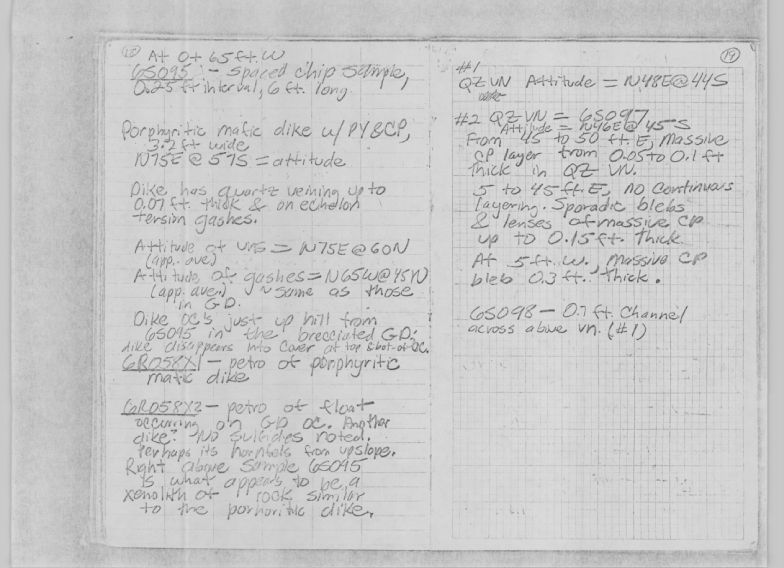 18
At 0+65 ft. W
6S095 - spaced chip sample,
0.25 ft interval, 6 ft. long
Porphyritic mafic dike w/ PY&CP,
3.2 ft wide
N75E @ 57S = attitude
Dike has quartz veining up to
0.07 ft. thick & en echelon
tension gashes.
Attitude of vns = N75E@60N
(app. ave)
Attitude of gashes = N65W@45N
(app. ave.) ~ same as those
in GD.
Dike OC's just up hill from
6S095 in the brecciated GD;
dike disappears into cover at top & bot. of OC.
6R058X1 - petro of porphyritic
mafic dike
6R058X2 - petro of float
occurring on GD OC. Another
dike? No sulfides noted.
Perhaps its hornfels from upslope.
Right above sample 6S095
is what appears to be a
xenolith of rock similar
to the porhoritic dike.
19
#1
QZ VN Attitude = N48E@44S
#2 QZ VN = 6S097
Attitude = N46E@45°S
From 45 to 50 ft. E, Massive
CP layer from 0.05 to 0.1 ft
thick in QZ VN.
5 to 45 ft. E, no continuous
layering. Sporadic blebs
& lenses of massive CP
up to 0.15 ft. thick.
At 5 ft. W., massive CP
bleb 0.3 ft. thick.
6S098 - 0.7 ft. channel
across above vn. (#1)